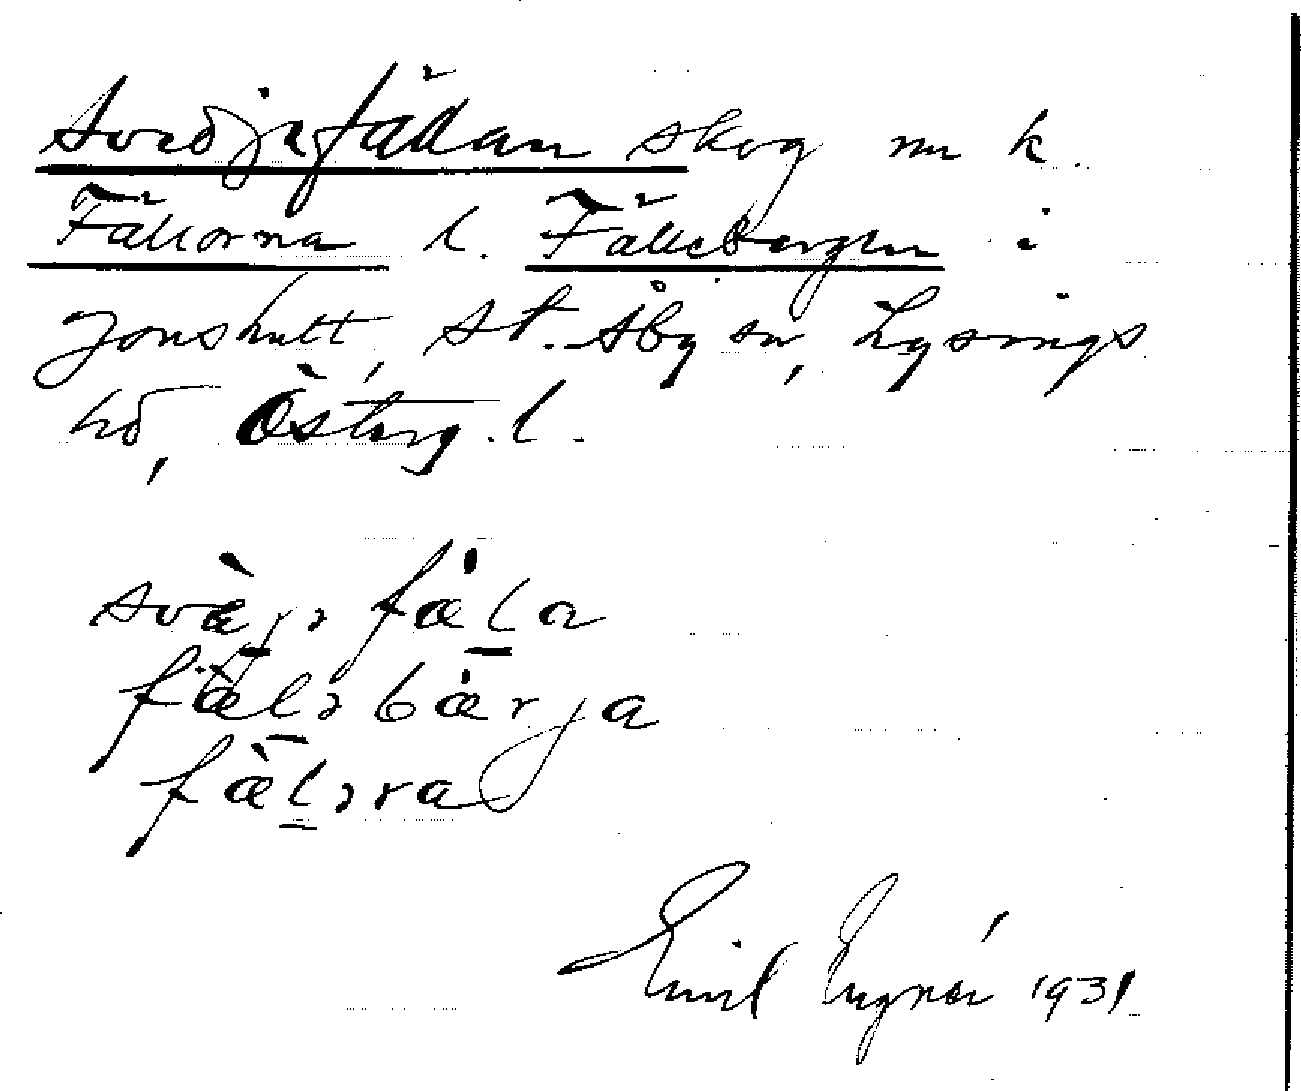 Svedjefällan skog nu k.
Fällorna l. Fällebergen i
Jonshult, St. Åby sn, Lysings
hd, Österg. l.
svæ̀jə fæ̀lα
fæ̀ləbærjα
fæ̀lərα
Emil Engnér 1931